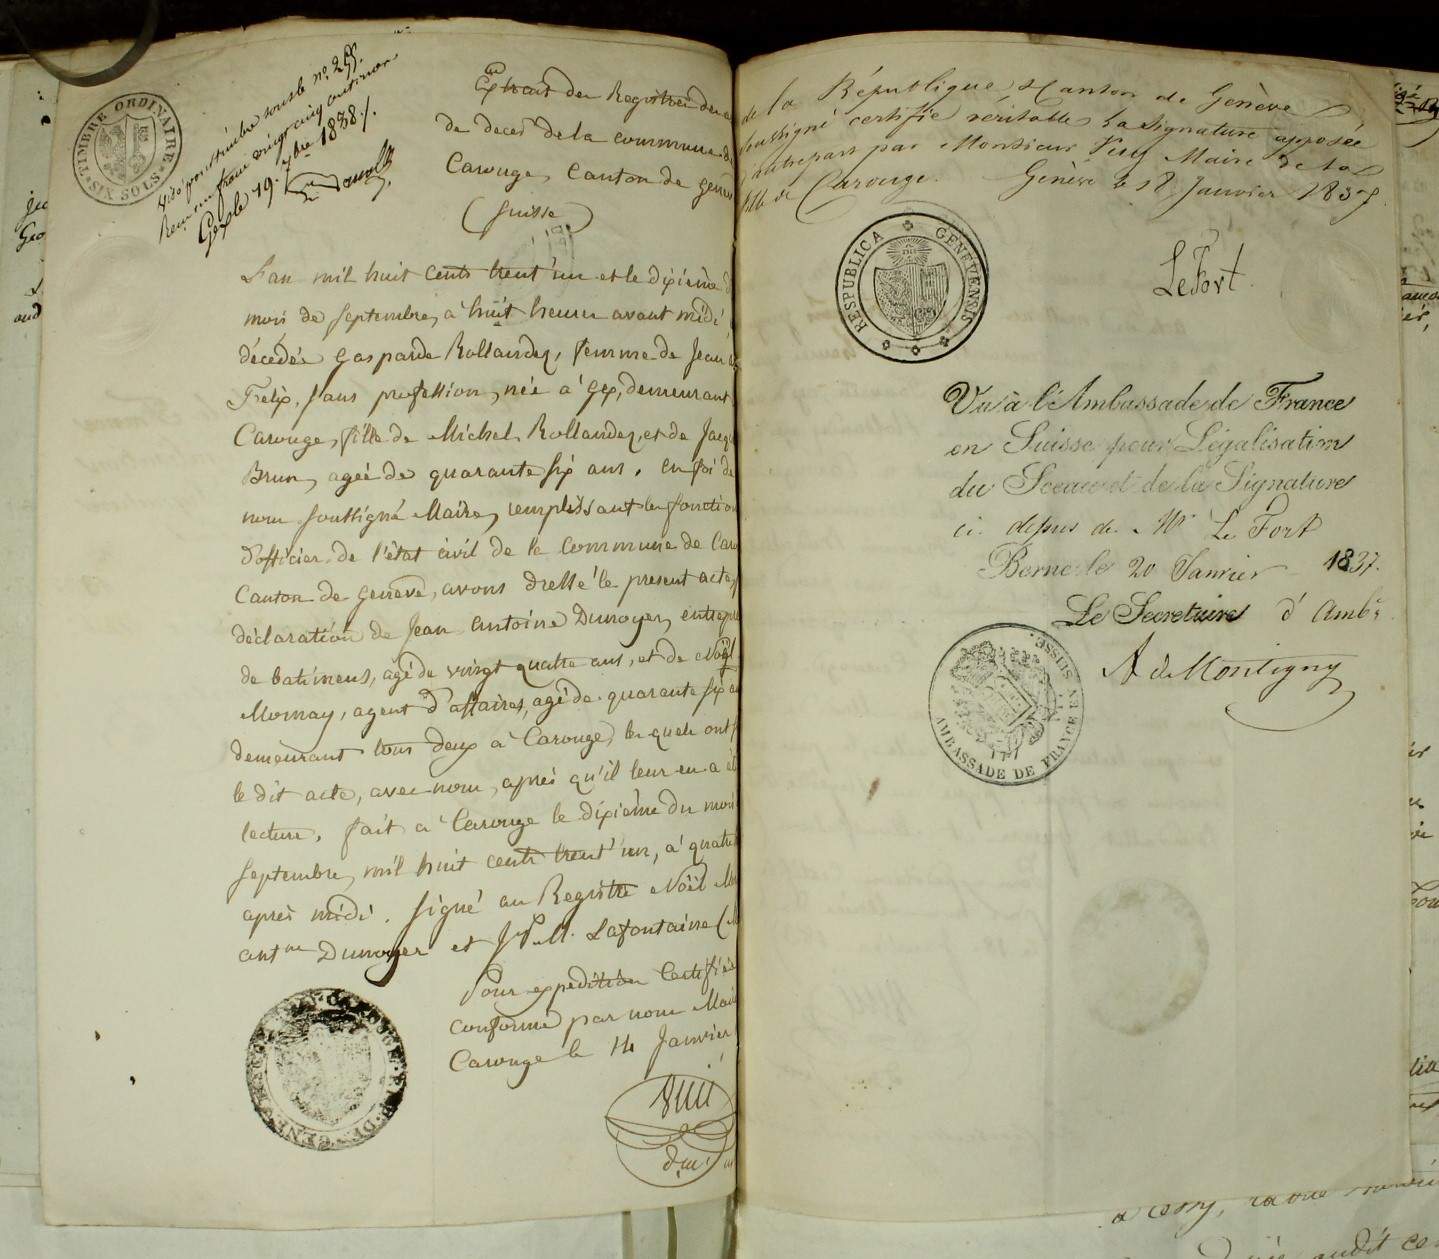 TIMBRE ORDINAIRE
SIX SOLS
Visé pour timbre sous le no. 255.
Reçu un franc vingt cinq centimes
Gex le 19. 7bre 1838 /.
Extrait des Registres des
de décès de la commune de
Carouge, Canton de genève
(Suisse)
L'an mil huit cents trent'un et le dixième d
mois de septembre, à huit heures avant midi,
décédée Gasparde Rollandez, femme de Jean
Felix, sans profession, née à Gex, demeurant
Carouge, fille de Michel Rollandez, et de Jaq
Brun, agée de quarante six ans. en foi de
nous soussigné Maire, remplissant les fonction
d'officier de l'état civil de la commune de Car
Canton de genève, avons dressé le present acte,
déclaration de Jean Antoine Dunoyer, entrepr
de batimens, agé de vingt quatre ans, et de Noël
Mornay, agent d'affaires, agé de quarante six a
demeurant tous deux à Carouge, les quels ont
le dit acte, avec nous, après qu'il leur en a é
lecture. fait à Carouge le dixième du mois
septembre, mil huit cents trent'un, à quatre
après midi. signé au Registre Noël M
antne Dunoyer et Jh M. Lafontaine (
Pour expédition Certifiée
conforme par nous Mai
Carouge le 14 Janvier
de la République & Canton de Genève
soussigné certifie véritable la signature apposée
autrepart par Monsieur Maire de la
ville de Carouge. Genève le 18 Janvier 1837.
RESPUBLICA GENEVENSIS
LeFort.
Vu à l'Ambassade de France
en Suisse pour Légalisation
du Sceau et de la Signature
ci. dessus de Mr Le Fort
Berne le 20 Janvier 1837.
Le Secretaire d'Ambe
A de Montigny
AMBASSADE DE FRANCE EN SUISSE.